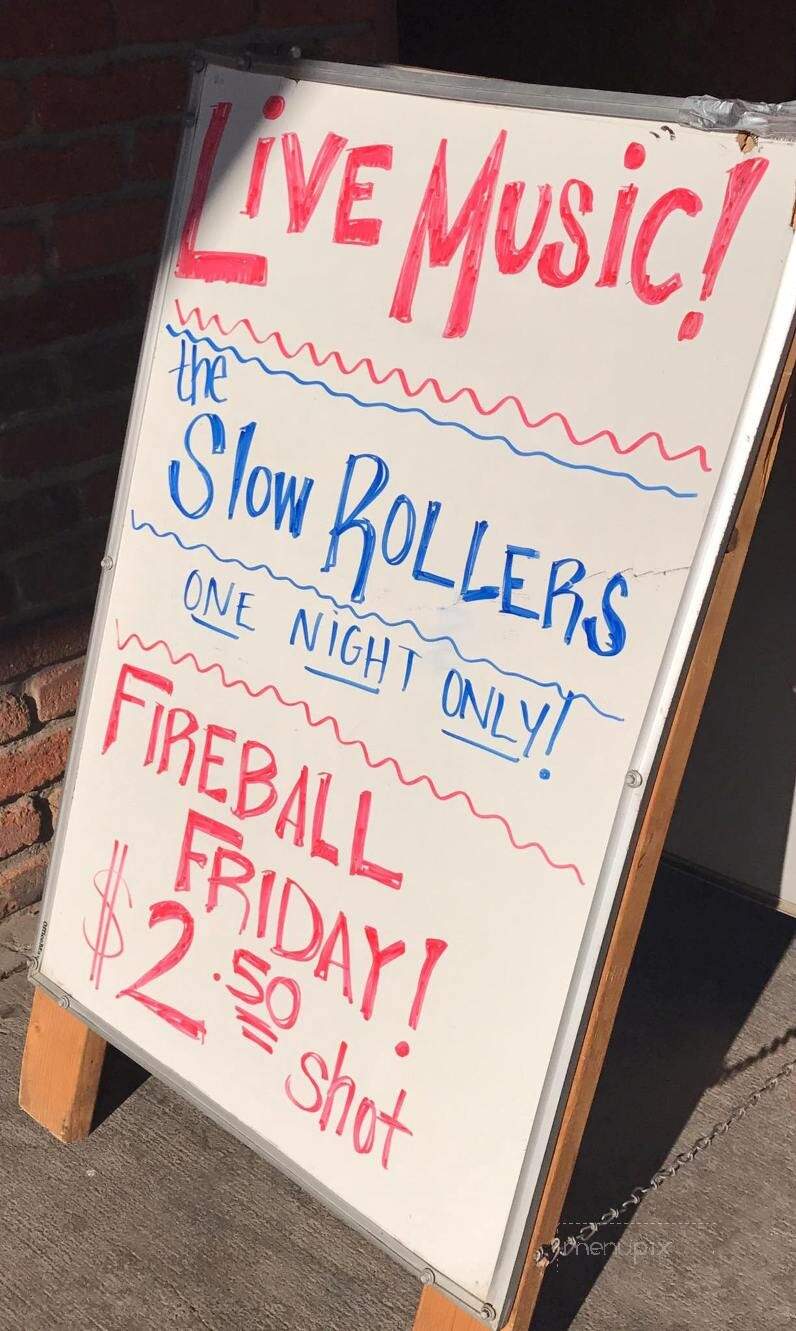 LiVE MUSiC!
the
Slow ROLLERS
ONE NiGHT ONLY!
FIREBALL
FRIDAY!
$2.50
shot
menupix